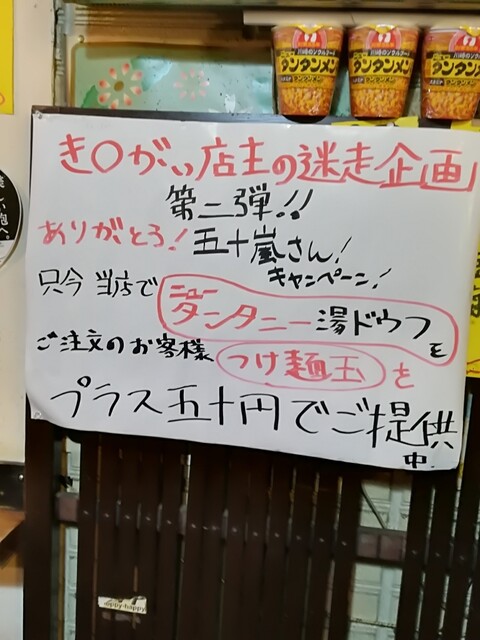 タンタンメン
タンタンメン
タンタンメン
き〇がい店主の迷走企画
第二弾!!
ありがとう! 五十嵐さん!
キャンペーン!
只今 当店で
ニュー
タンタニー湯ドウフを
ご注文のお客様 つけ麺玉を
プラス五十円でご提供
中